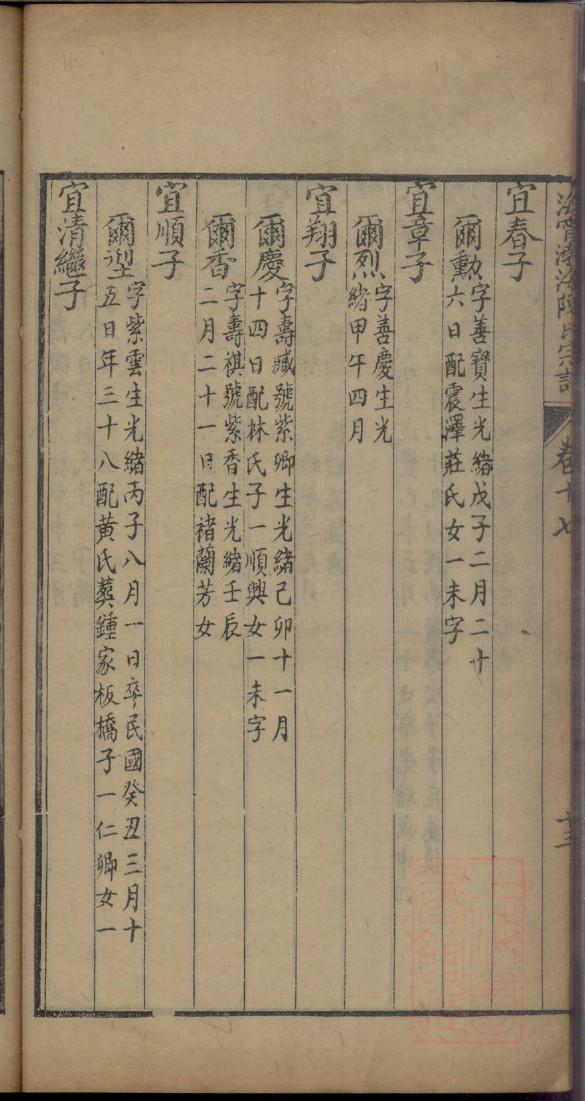 海寧渤海陳氏宗譜
卷十七
十三
宜春子
爾勳
字善寶生光緒戊子二月二十
六日配震澤莊氏女一未字
宜章子
爾烈
字善慶生光
緒甲午四月
宜翔子
爾慶
字壽臧號紫卿生光緒己卯十一月
十四日配林氏子一順興女一未字
爾香
字壽祺號紫香生光緒壬辰
二月二十一日配褚蘭芳女
宜順子
爾型
字紫雲生光緒丙子八月一日卒民國癸丑三月十
五日年三十八配黃氏葬鍾家板橋子一仁卿女一
宜清繼子